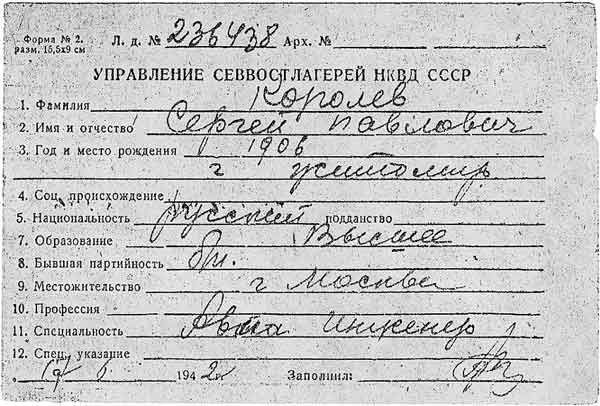 Форма № 2. разм. 15,5х9 см
Л. д. № 236438 Арх. №
УПРАВЛЕНИЕ СЕВВОСТЛАГЕРЕЙ НКВД СССР
1. Фамилия Королев
2. Имя и отчество Сергей Павлович
3. Год и место рождения 1906
г Житомир
4. Соц. происхождение
5. Национальность русский подданство
7. Образование Высшее
8. Бывшая партийность бп.
9. Местожительство г Москва
10. Профессия
11. Специальность Авиа Инженер
12. Спец. указание
194 2 г Заполнил: